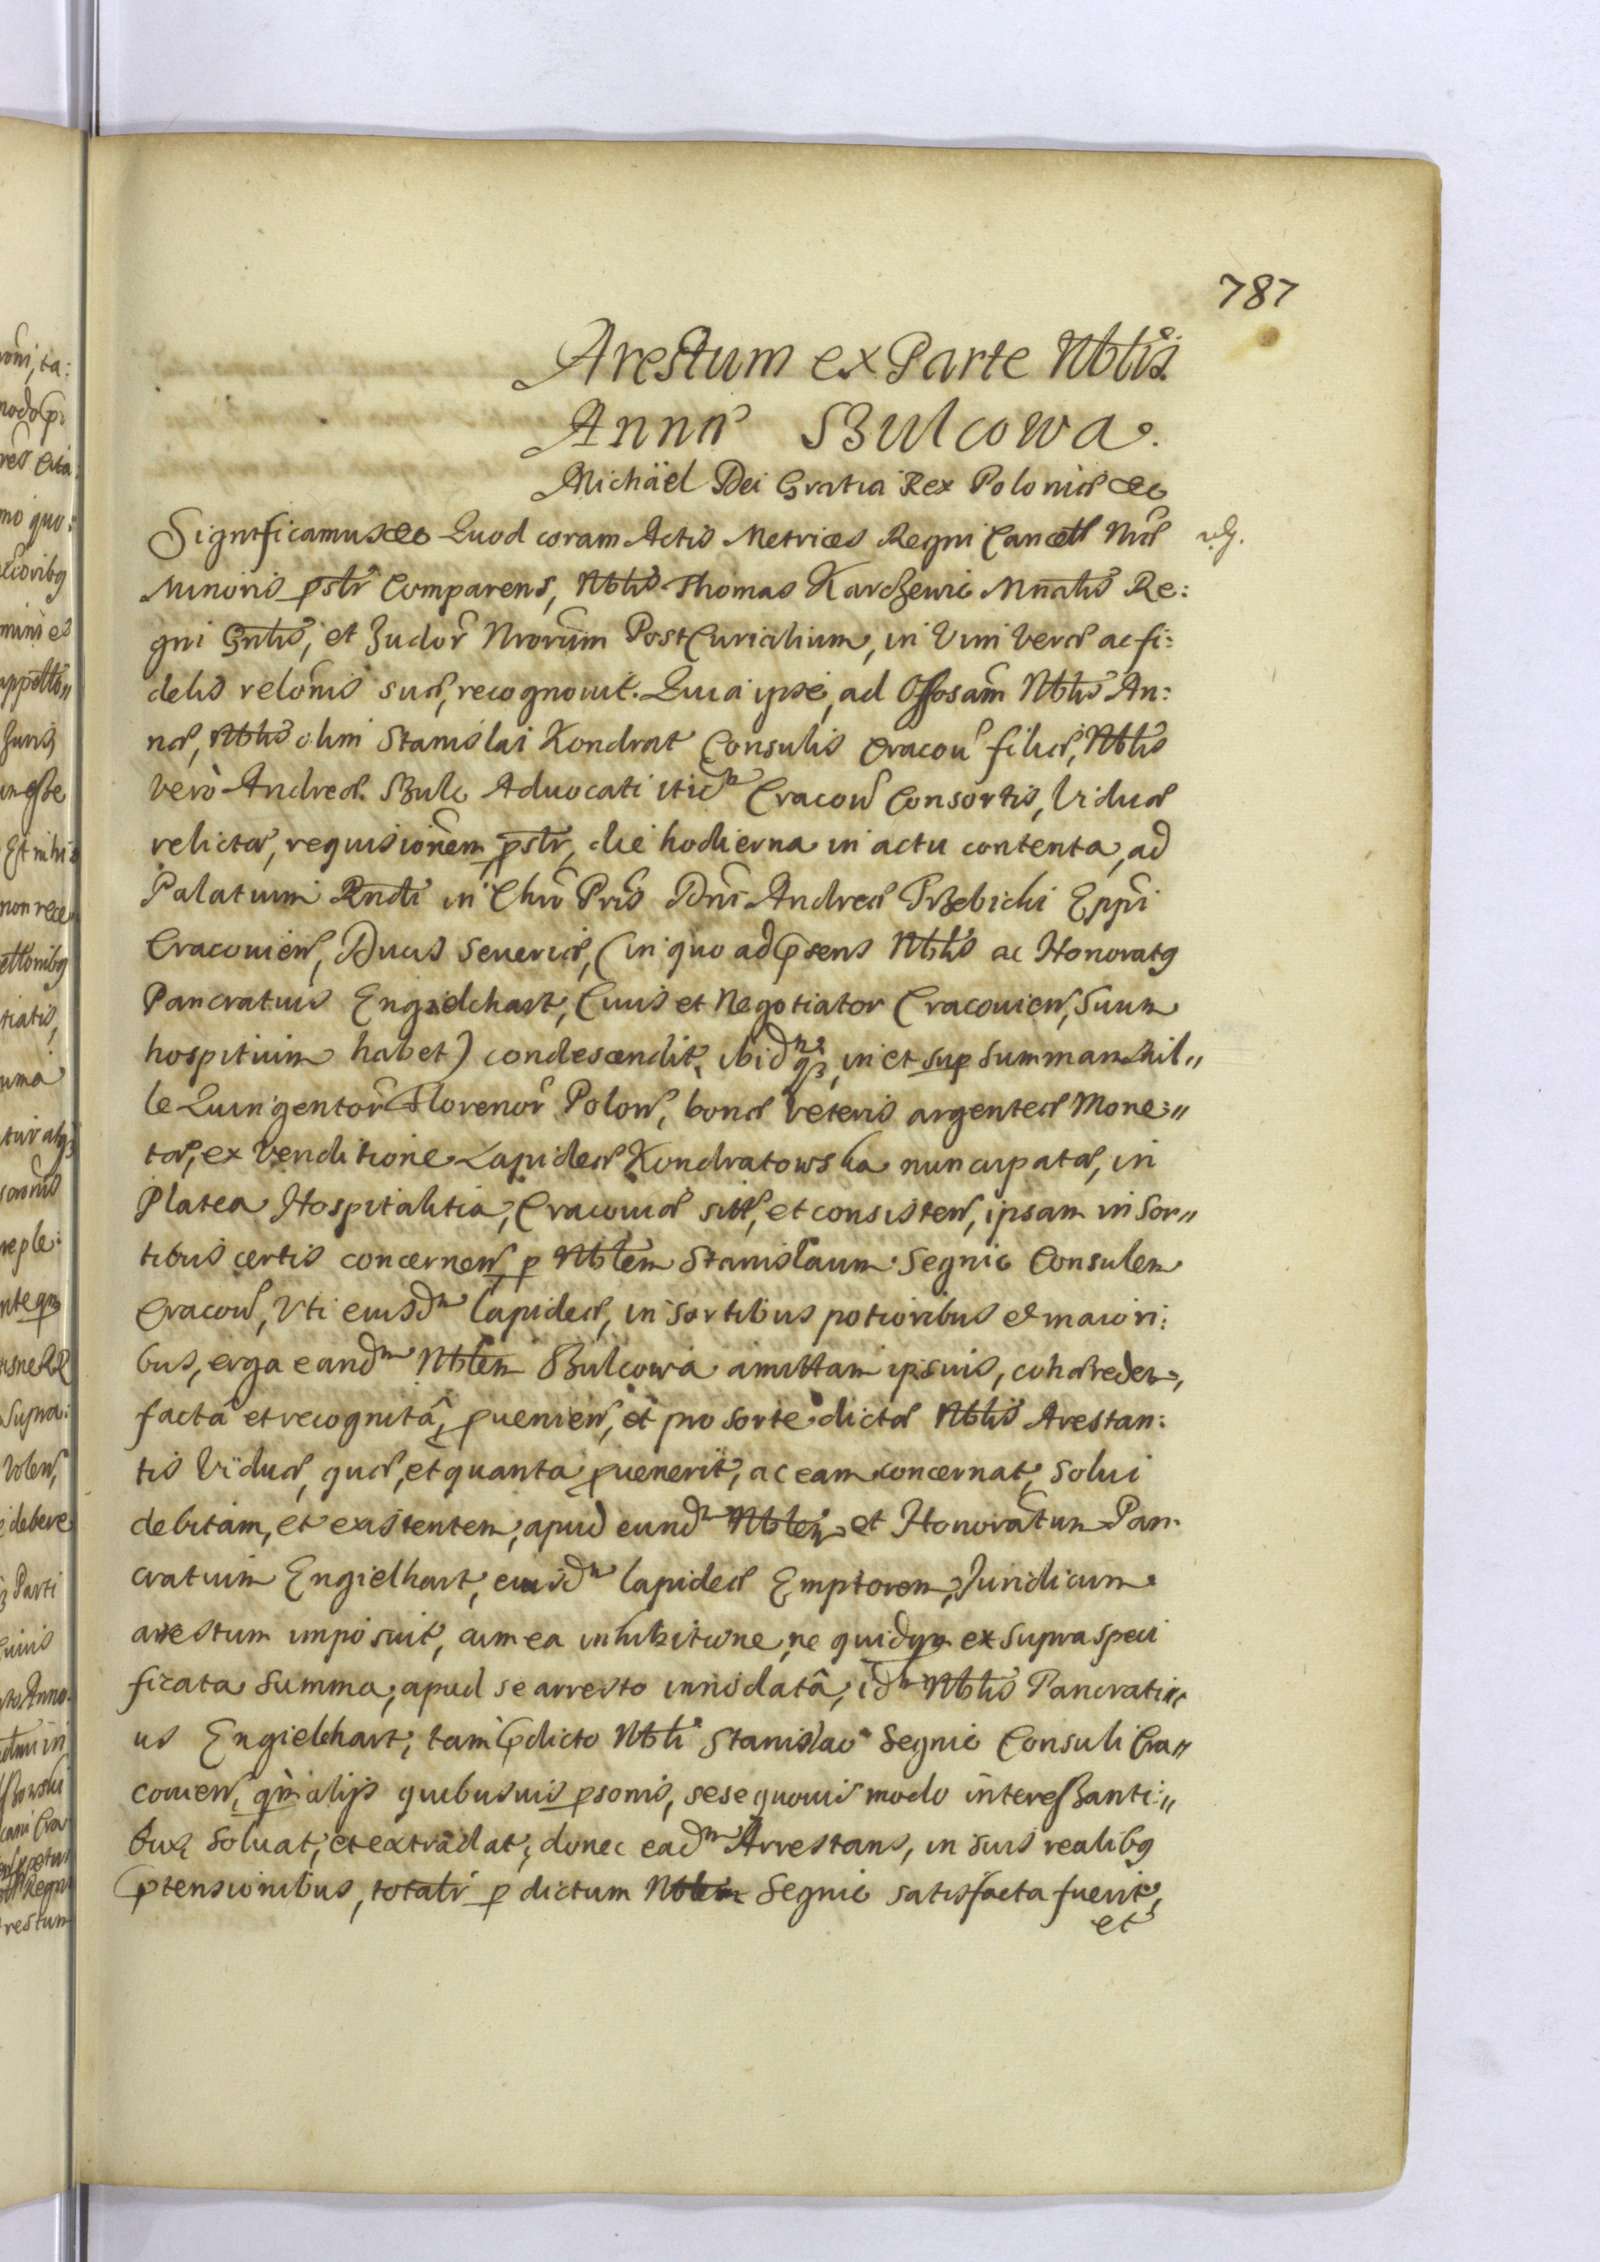 787
Arestum ex Parte Nblis
Annæ Bulcowa.
Michäel Dei Gratia Rex Poloniæ &c
Significamus &c Quod coram Actis Metrices Regni Cancell Nræ
Minoris pslr Comparens, Nblis Thomas Karczewic Mnalis Re:
gni Gnlis, et Judor Nrorum PostCurialium, in Vim Veræ ac fi:
delis relonis suæ, recognovit. Quia ipse, ad Offosam Nblis An:
næ, Nblis olim Stanislai Kondrat Consulis Cracov filiæ, Nblis
verò Andreæ Bulc Advocati itidm Cracov Consortis, Viduæ
relictæ, requisionem pslr, die hodierna in actu contenta, ad
Palatium Rndi in Chro Pris Dni Andreæ Trzebicki Eppi
Cracovien, Ducis Severiæ, (in quo ad psens Nblis ac Honoratq
Pancratius Engielchart, Civis et Negotiator Cracovien, Suum
hospitium habet) condescendit, ibidmq3, in et sup summam Mil"
le Quingentor Florenor Polon, bonæ veteris argenteæ Mone:"
tæ, ex Venditione Lapideæ Kondratowska nuncupatæ, in
Platea Hospitalitia, Cracoviæ sitæ, et consisten, ipsam in Sor"
tibus certis concernen, p Nblem Stanislaum Segnic Consulem
Cracov, Vti eiusdm Lapideæ, in Sortibus potioribus et maiori:
bus, erga eandm Nblem Bulcowa amittam ipsius, cohæredem,
factâ et recognitâ, pvenien, et pro sorte dictæ Nblis Arestan:
tis Viduæ, quæ, et quanta pvenerit, ac eam concernat, Solvi
debitam, et existentem, apud eundm Nblem et Honoratum Pan
cratium Engielhart, eiusdm Lapideæ Emptorem, Juridicum
arestum imposuit, cum ea inhibitione, ne quidqm ex supra speci
ficata Summa, apud se arresto innodatâ, idm Nblis Pancrati"
us Engielchart, tam pdicto Nbli Stanislao Segnic Consuli Cra"
covien, qm alijs quibusvis psonis, sese quovis modo interessanti:"
bus solvat, et extradat, donec eadm Arrestans, in suis realibq
ptensionibus, totalr p dictum Nblem Segnic satisfacta fuerit,
et